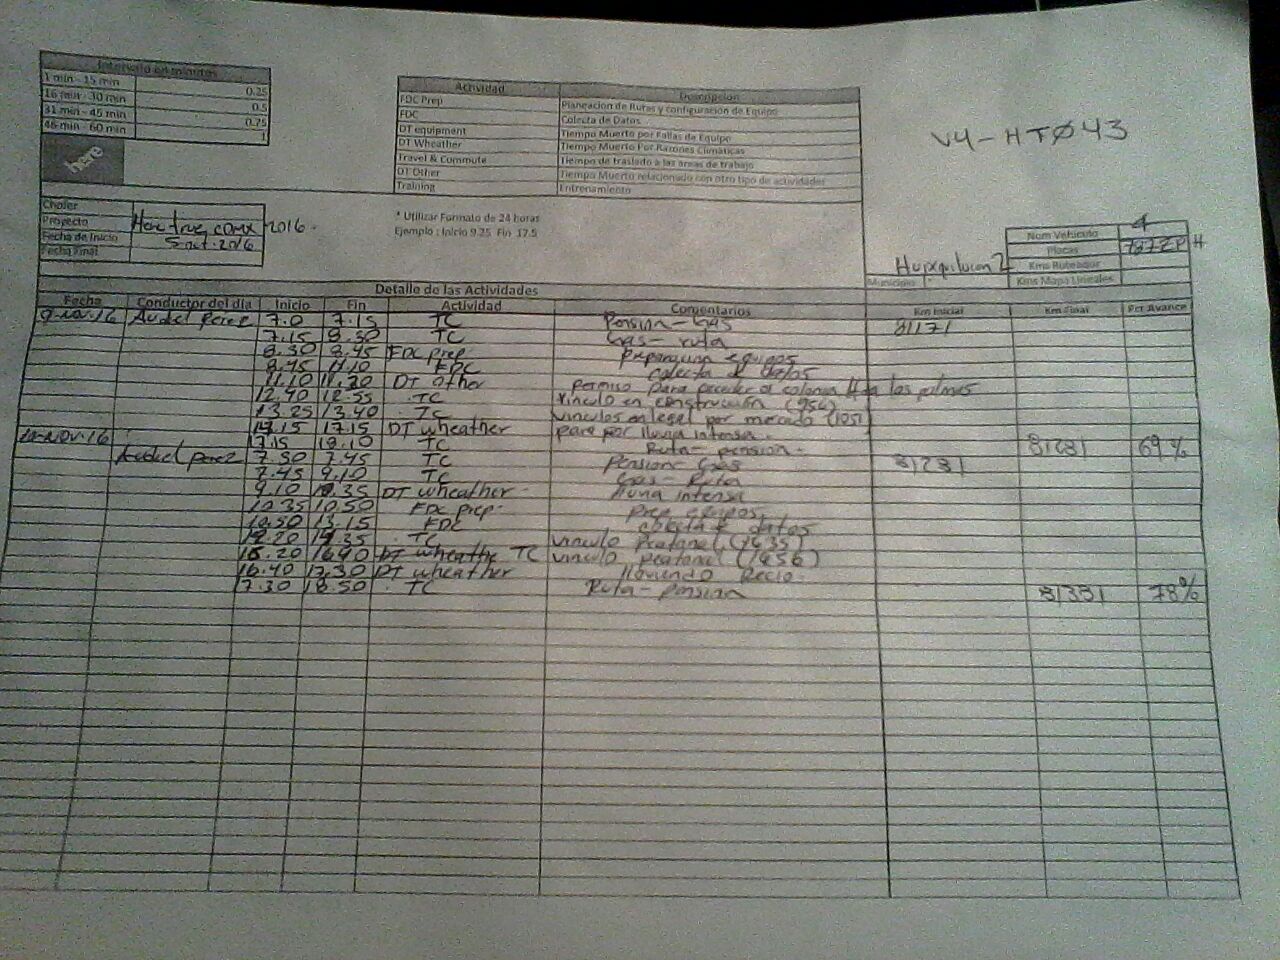 Intervalo en minutos
1 min - 15 min 0.25
16 min - 30 min 0.5
31 min - 45 min 0.75
46 min - 60 min 1
here
Actividad Descripcion
FDC Prep Planeacion de Rutas y configuracion de Equipo
FDC Colecta de Datos
DT equipment Tiempo Muerto por Fallas de Equipo
DT Wheather Tiempo Muerto Por Razones Climaticas
Travel & Commute Tiempo de traslado a las areas de trabajo
DT Other Tiempo Muerto relacionado con otro tipo de actividades
Training Entrenamiento
V4-HTØ43
Chofer
Proyecto Here true CDMX 2016.
Fecha de Inicio 2016
Fecha Final
* Utilizar Formato de 24 horas
Ejemplo : Inicio 9.25 Fin 17.5
Num Vehiculo 4
Placas
Kms Ruteador
Kms Mapa Lineales
Municipio
Detalle de las Actividades
Fecha Conductor del dia Inicio Fin Actividad Comentarios Km Inicial Km Final Per Avance
9-nov-16 Audiel perez 7.0 7.15 TC Pension-Gas 81171
7.15 8.30 TC Gas-ruta
8.30 8.45 FDC prep equipos
8.45 11.10 FDC colecta de datos
11.10 11.20 DT other permiso para acceder a colonia las palmas
12.40 12.55 TC vinculo en construcción (956)
13.25 13.40 TC vinculos en legal por mercado (1051)
14.15 17.15 DT wheather paro por lluvia intensa.
17.15 19.10 TC Ruta-pension. 81231 69%
10-nov-16 Audiel perez 7.30 7.45 TC Pension-Gas 81231
7.45 9.10 TC Gas-Ruta
9.10 10.35 DT wheather lluvia intensa
10.35 10.50 FDC prep. Prep equipos.
10.50 13.15 FDC colecta de datos
14.20 14.35 TC vinculo Peatonal (1435)
16.20 16.40 DT wheathe TC vinculo peatonal (1456)
16.40 17.30 DT wheather lloviendo Recio.
17.30 18.50 TC Ruta-pension 81331 78%